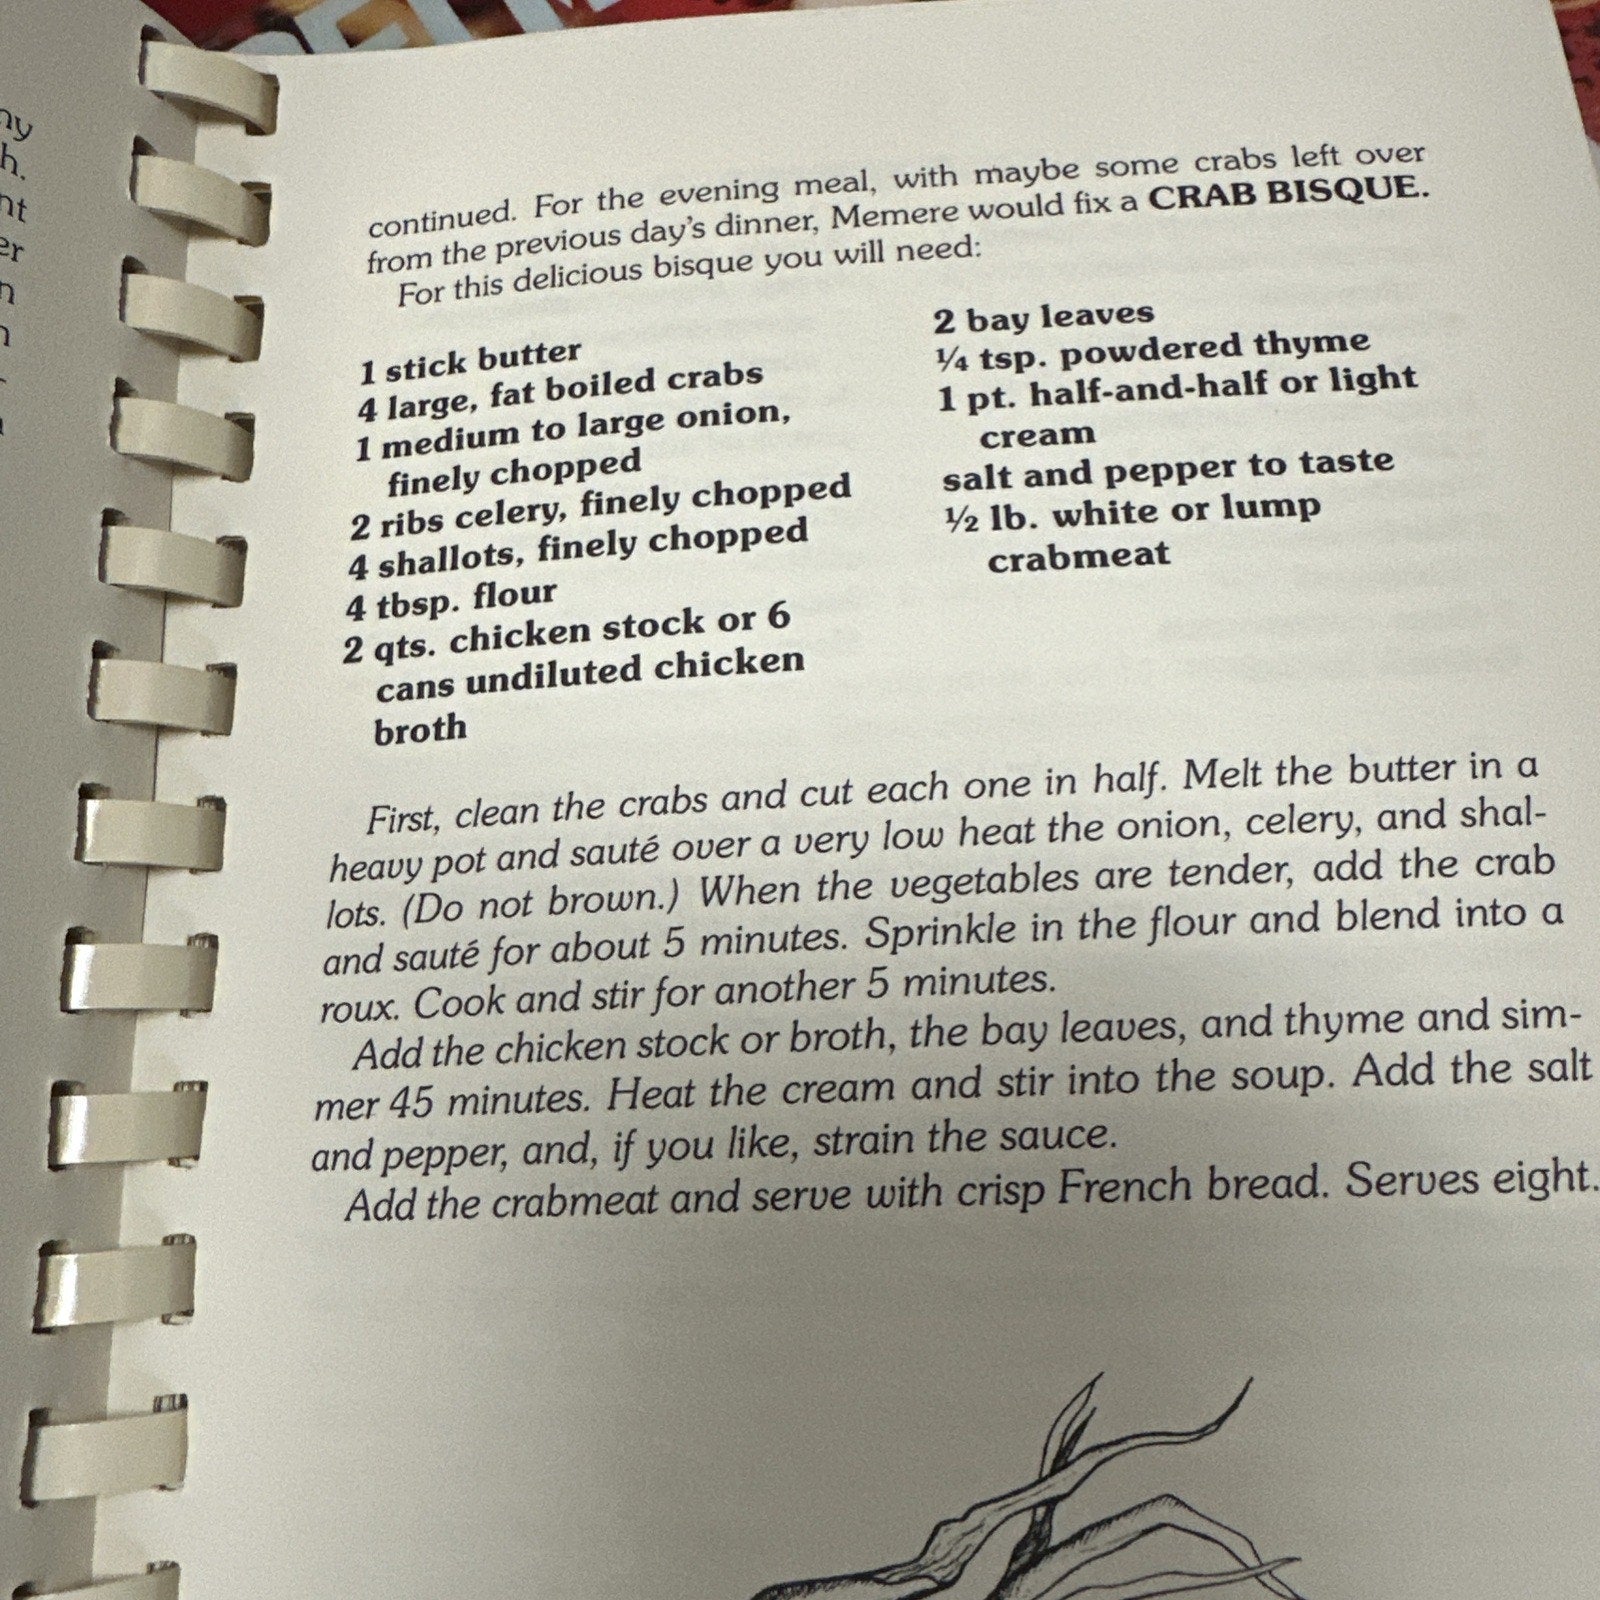 continued. For the evening meal, with maybe some crabs left over
from the previous day's dinner, Memere would fix a CRAB BISQUE.
For this delicious bisque you will need:
1 stick butter
4 large, fat boiled crabs
1 medium to large onion,
finely chopped
2 ribs celery, finely chopped
4 shallots, finely chopped
4 tbsp. flour
2 qts. chicken stock or 6
cans undiluted chicken
broth
2 bay leaves
¼ tsp. powdered thyme
1 pt. half-and-half or light
cream
salt and pepper to taste
½ lb. white or lump
crabmeat
First, clean the crabs and cut each one in half. Melt the butter in a
heavy pot and sauté over a very low heat the onion, celery, and shal-
lots. (Do not brown.) When the vegetables are tender, add the crab
and sauté for about 5 minutes. Sprinkle in the flour and blend into a
roux. Cook and stir for another 5 minutes.
Add the chicken stock or broth, the bay leaves, and thyme and sim-
mer 45 minutes. Heat the cream and stir into the soup. Add the salt
and pepper, and, if you like, strain the sauce.
Add the crabmeat and serve with crisp French bread. Serves eight.